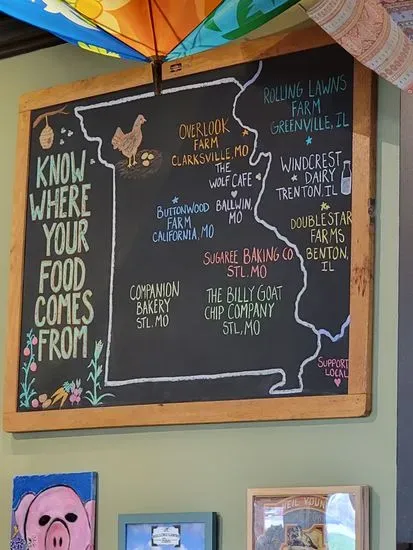 KNOW
WHERE
YOUR
FOOD
COMES
FROM
OVERLOOK
FARM
CLARKSVILLE, MO
THE
WOLF CAFE
BALLWIN,
MO
BUTTONWOOD
FARM
CALIFORNIA, MO
SUGAREE BAKING CO
STL. MO
COMPANION
BAKERY
STL. MO
THE BILLY GOAT
CHIP COMPANY
STL, MO
ROLLING LAWNS
FARM
GREENVILLE, IL
WINDCREST
DAIRY
TRENTON, IL
DOUBLESTAR
FARMS
BENTON,
IL
SUPPORT
LOCAL
ROLLING LAWNS
NEIL YOUNG